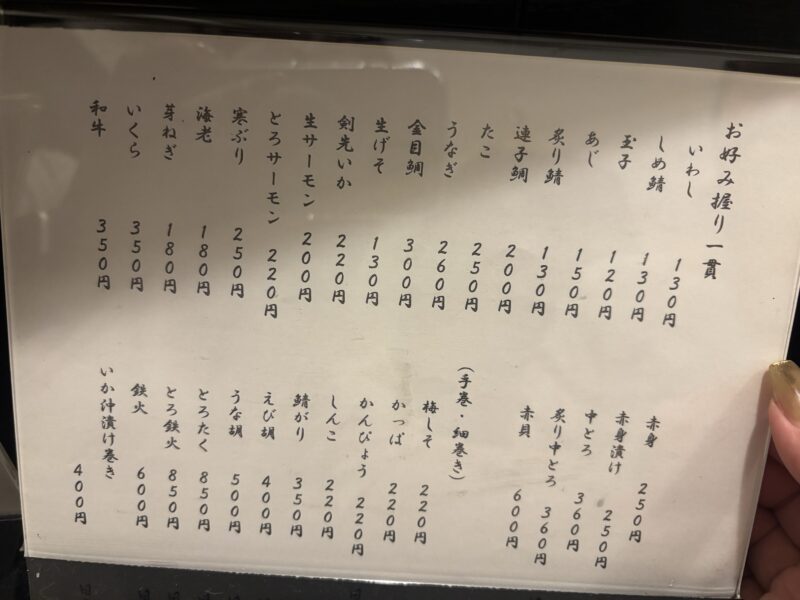 お好み握り一貫
いわし 130円
しめ鯖 130円
玉子 120円
あじ 150円
炙り鯖 130円
連子鯛 200円
たこ 250円
うなぎ 260円
金目鯛 300円
生げそ 130円
剣先いか 220円
生サーモン 200円
とろサーモン 220円
寒ぶり 250円
海老 180円
芽ねぎ 180円
いくら 350円
和牛 350円
赤身 250円
赤身漬け 250円
中とろ 360円
炙り中とろ 360円
赤貝 600円
(手巻・細巻き)
梅しそ 220円
かっぱ 220円
かんぴょう 220円
しんこ 220円
鯖がり 350円
えび胡 400円
うな胡 500円
とろたく 850円
とろ鉄火 850円
鉄火 600円
いか沖漬け巻き 400円